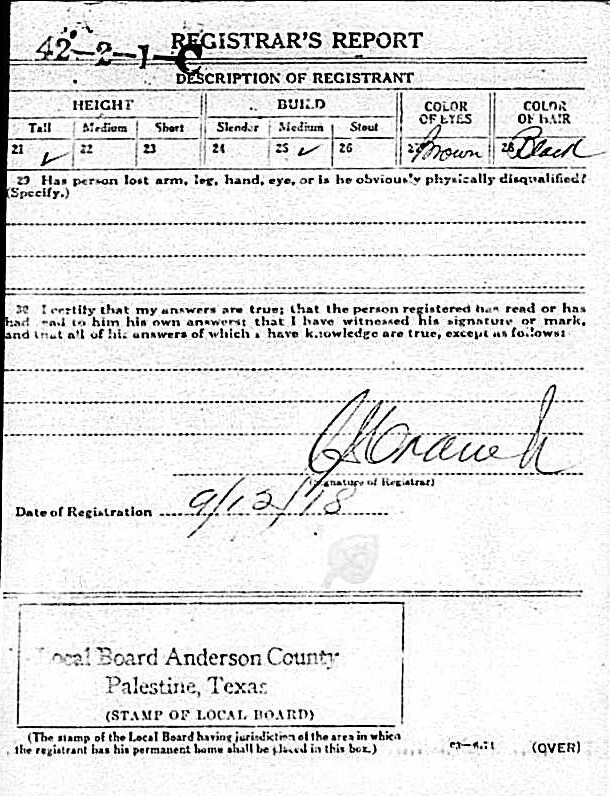 42-2-1-C
REGISTRAR'S REPORT
DESCRIPTION OF REGISTRANT
HEIGHT BUILD COLOR OF EYES COLOR OF HAIR
Tall Medium Short Slender Medium Stout
21 ✓ 22 23 24 25 ✓ 26 27 Brown 28 Black
29 Has person lost arm, leg, hand, eye, or is he obviously physically disqualified?
(Specify.)
30 I certify that my answers are true; that the person registered has read or has
had read to him his own answers; that I have witnessed his signature or mark,
and that all of his answers of which I have knowledge are true, except as follows:
(Signature of Registrar)
Date of Registration 9/12/18
Local Board Anderson County
Palestine, Texas
(STAMP OF LOCAL BOARD)
(The stamp of the Local Board having jurisdiction of the area in which
the registrant has his permanent home shall be placed in this box.)
(OVER)